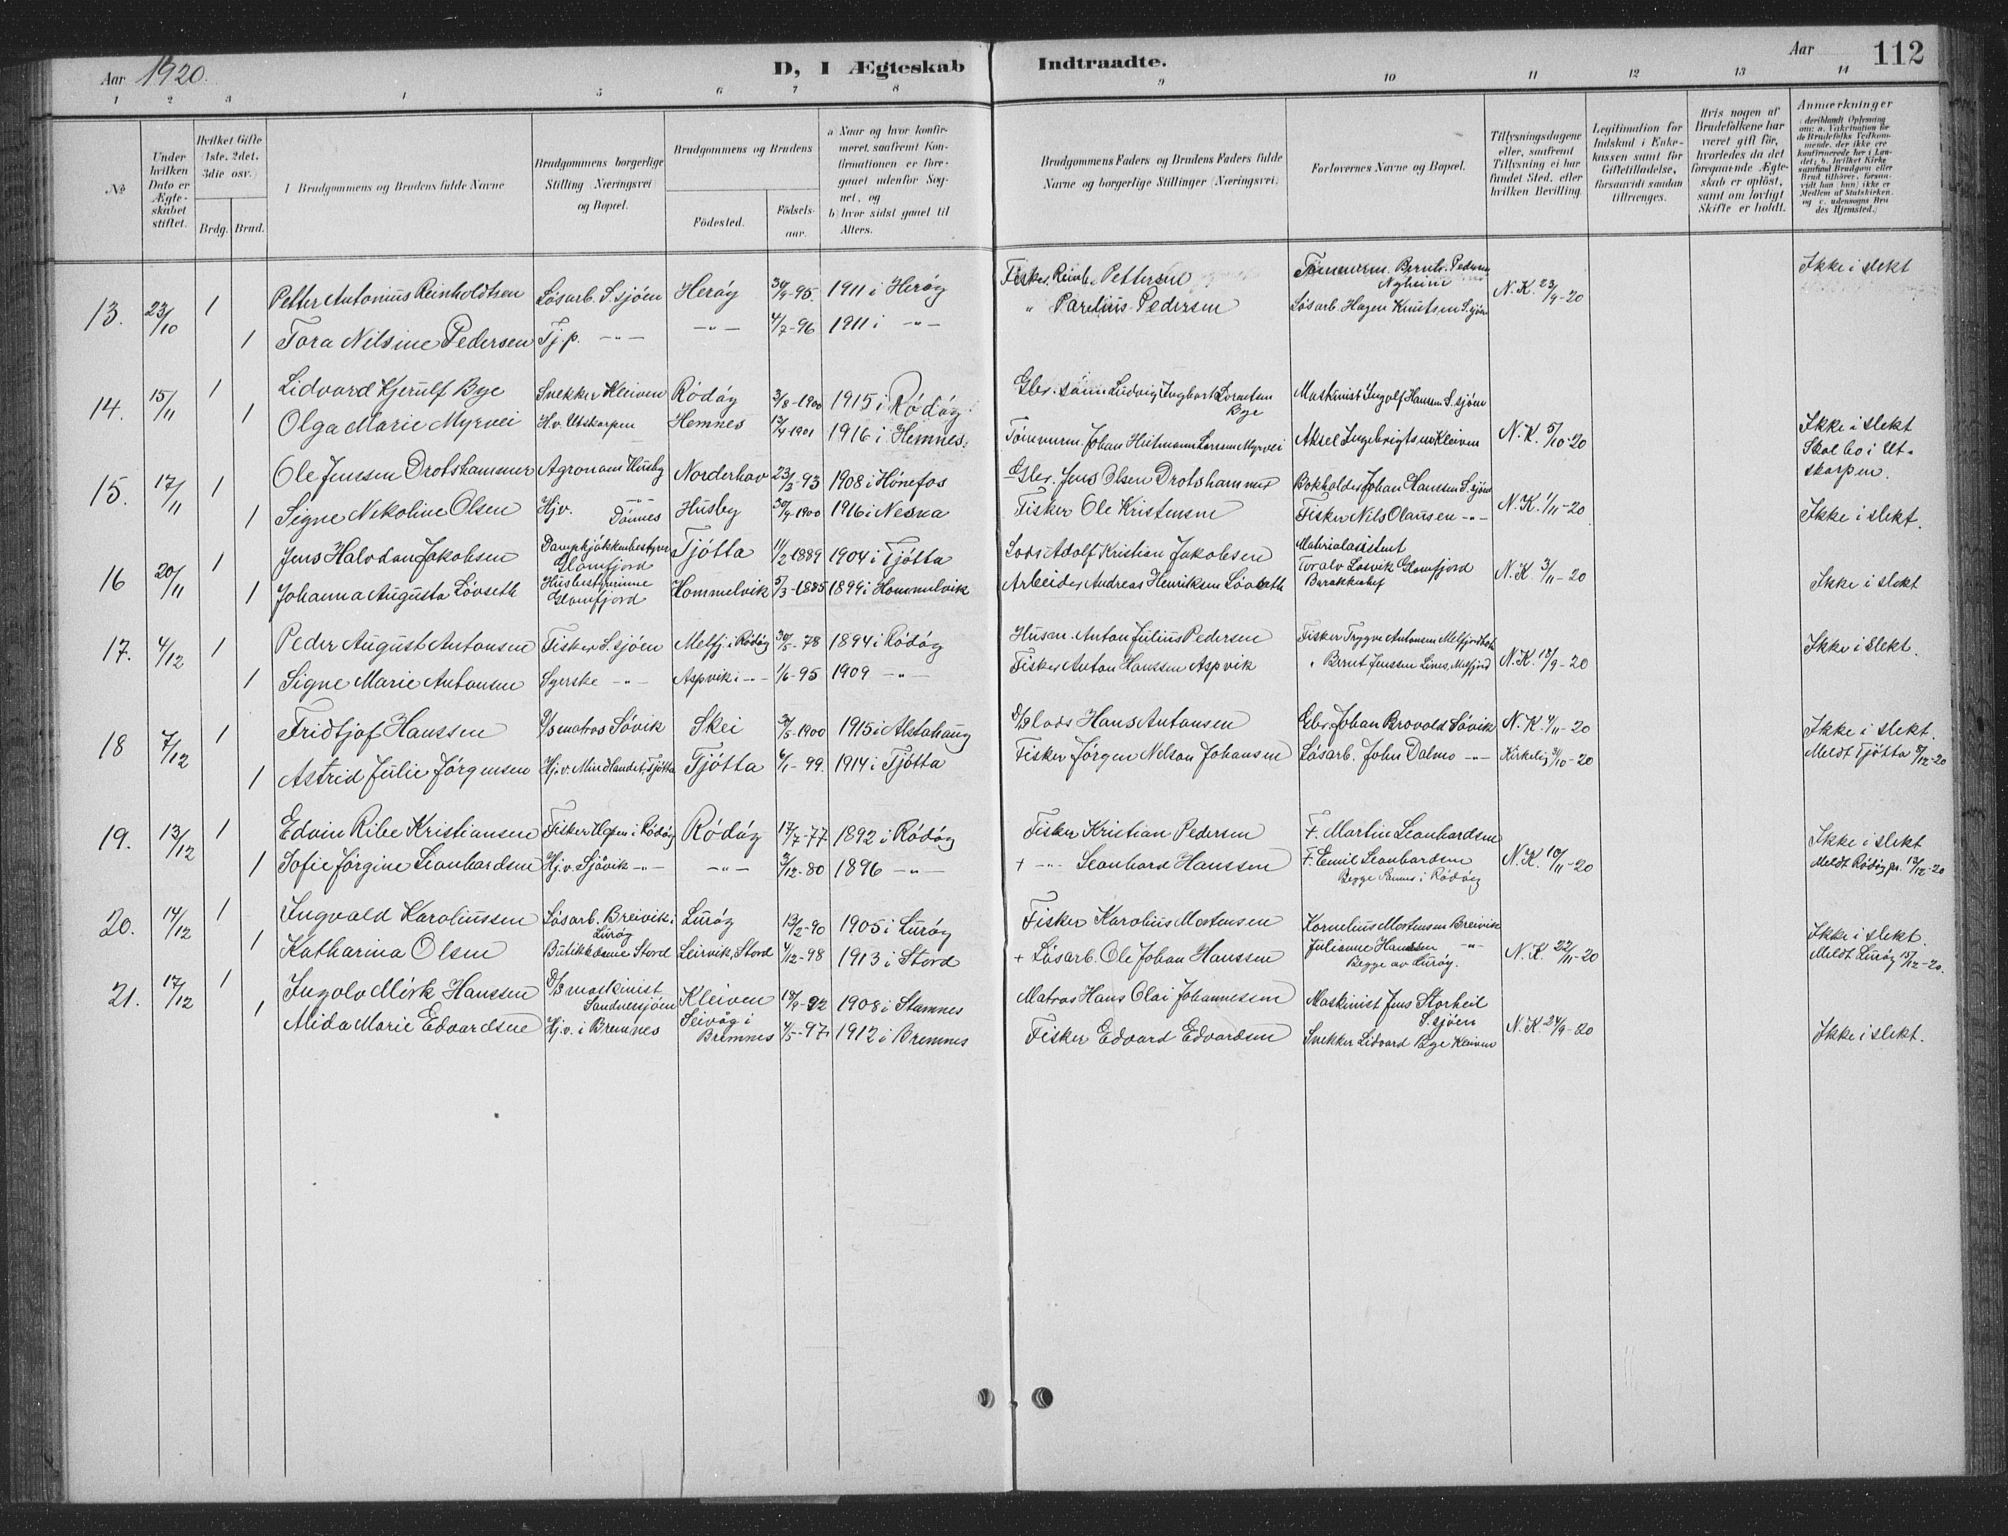 Aar 1920.
D, I Ægteskab Indtraadte.
Aar 112
1 2 3 4 5 6 7 8 9 10 11 12 13 14
No
Under hvilken Dato er Ægteskabet stiftet.
Hvilket Gifte 1ste, 2det, 3die osv.)
Brdg. Brud.
Brudgommens og Brudens fulde Navne
Brudgommens borgerlige Stilling (Næringsvei) og Bopæl.
Brudgommens og Brudens
Födested. Födselsaar.
a) Naar og hvor konfirmeret, saafremt Konfirmationen er foregaaet udenfor Sognet, og
b) hvor sidst gaaet til Alters.
Brudgommens Faders og Brudens Faders fulde Navne og borgerlige Stillinger (Næringsvei).
Forlovernes Navne og Bopæl.
Tillysningsdagene eller, saafremt Tillysning ei har fundet Sted, efter hvilken Bevilling.
Legitimation for Indskud i Enkekassen samt for Giftetilladelse, forsaavidt saadan tiltrænges.
Hvis nogen af Brudefolkene har været gift för, hvorledes da det foregaaende Ægteskab er oplöst, samt om lovligt Skifte er holdt.
Anmærkninger (deriblandt Oplysning om: a. Vakcination for de Brudefolks Vedkommende, der ikke ere konfirmerede her i Landet; b. hvilket Kirkesamfund Brudgom eller Brud tilhörer, forsaavidt han (hun) ikke er Medlem af Statskirken, og c. udensogns Brudes Hjemsted.)
13. 23/10 1 Petter Antonius Reinholdtsen Løsarb. S.sjøen Herøy 30/9-95. 1911 i Herøy Fisker Reinh. Pettersen Tømmerm. Bernt. Pedersen Nyheim N.K. 23/9-20 Ikke i slekt
1 Tora Nilsine Pedersen Tj.p. -"- -"- 4/7-96 1911 i -"- " Parelius Pedersen Løsarb. Hagen Knutsen S.sjøen
14. 15/11 1 Lidvard Kjerulf Bye Snekker Kleiven Rødøy 3/8-1900 1915 i Rødøy. Gbr.sønn Ludvig Ingbart Lorntsen Bye Maskinist Ingolf Hansen S.sjøen
1 Olga Marie Myrvei H.v. Utskarpen Hemnes 13/4-1901 1916 i Hemnes. Tømmerm. Johan Hutmann Larsen Myrvei Aksel Ingebrigtsen Kleiven N.K. 5/10-20 Ikke i slekt Skal bo i Utskarpen.
15. 17/11 1 Ole Jenssen Drotshammer Agronom Husby Norderhov 23/3-93 1908 i Hønefos Gbr. Jens Olsen Drotshammer Bokholder Johan Hanssen S.sjøen
1 Signe Nikoline Olsen Hjv. Dønnes Husby 30/9-1900 1916 i Nesna Fisker Ole Kristensen Fisker Nils Olaussen -"- N.K. 1/11-20 Ikke i slekt.
16 20/11 1 Jens Halvdan Jakobsen Dampkjøkkenbestyrer Glomfjord Tjøtta 11/2-1889 1904 i Tjøtta Lods Adolf Kristian Jakobsen Materialassistent Toralv Løsvik Glomfjord
1 Johanna Augusta Løvseth Husbestyrinne Glomfjord Hommelvik 5/3-1885 1899 i Hommelvik Arbeider Andreas Henriksen Løvseth Barakkechef N.K. 3/11-20 Ikke i slekt
17. 4/12 1 Peder August Antonsen Fisker S.sjøen Melfj. i Rødøy 30/5-78 1894 i Rødøy Husm. Anton Julius Pedersen Fisker Trygve Antonsen Melfjordbotn Ikke i slekt.
1 Signe Marie Antonsen Syerske -"- Aspvik i -"- 1/6-95 1909 -"- Fisker Anton Hanssen Aspvik " Bernt Jenssen Lines, Melfjord N.K. 13/9-20
18 7/12 1 Fridtjof Hanssen D/S matros Søvik Skei 3/5-1900 1915 i Alstahaug D/S lods Hans Antonsen Gbr. Johan Brovold Søvik N.K. 4/11-20 Ikke i slekt.
1 Astrid Julie Jørgensen Hj.v. Mindlandet, Tjøtta Tjøtta 6/1-99. 1914 i Tjøtta Fisker Jørgen Nelson Johansen Løsarb. John Dalmo -"- Kirkelig 31/10-20 Meldt Tjøtta 8/12-20
19. 13/12 1 Edvin Ribe Kristiansen Fisker Hopen i Rødøy Rødøy 17/7-77 1892 i Rødøy Fisker Kristian Pedersen F. Martin Leonhardsen Ikke i slekt
1 Sofie Jørgine Leonhardsen Hj.v. Sjåvik -"- -"- 3/12-80 1896 -"- + -"- Leonhard Hanssen F. Emil Leonhardsen Begge Sannes i Rødøy N.K. 10/11-20 Meldt Rødøy pr. 13/12-20
20. 14/12 1 Ingvald Karoliussen Løsarb. Breivik i Lurøy Lurøy 13/2-90 1905 i Lurøy Fisker Karolius Mortensen Kornelius Mortensen Breivik Ikke i slekt.
1 Katharina Olsen Butikkdame Stord Leirvik, Stord 4/12-98 1913 i Stord + Løsarb. Ole Johan Hanssen Julianne Hanssen -"- Begge av Lurøy. N.K. 22/11-20 Meldt Lurøy 15/12-20.
21. 17/12 1 Ingolv Mørk Hanssen D/S maskinist Sandnessjøen Kleiven 19/9-92 1908 i Stamnes Matros Hans Olai Johannesen Maskinist Jens Storheil S.sjøen
1 Alida Marie Edvardsen Hj.v. i Bremnes Leivåg i Bremnes 4/5-97. 1912 i Bremnes Fisker Edvard Edvardsen Snekker Lidvard Bye Kleiven N.K. 24/9-20 Ikke i slekt.